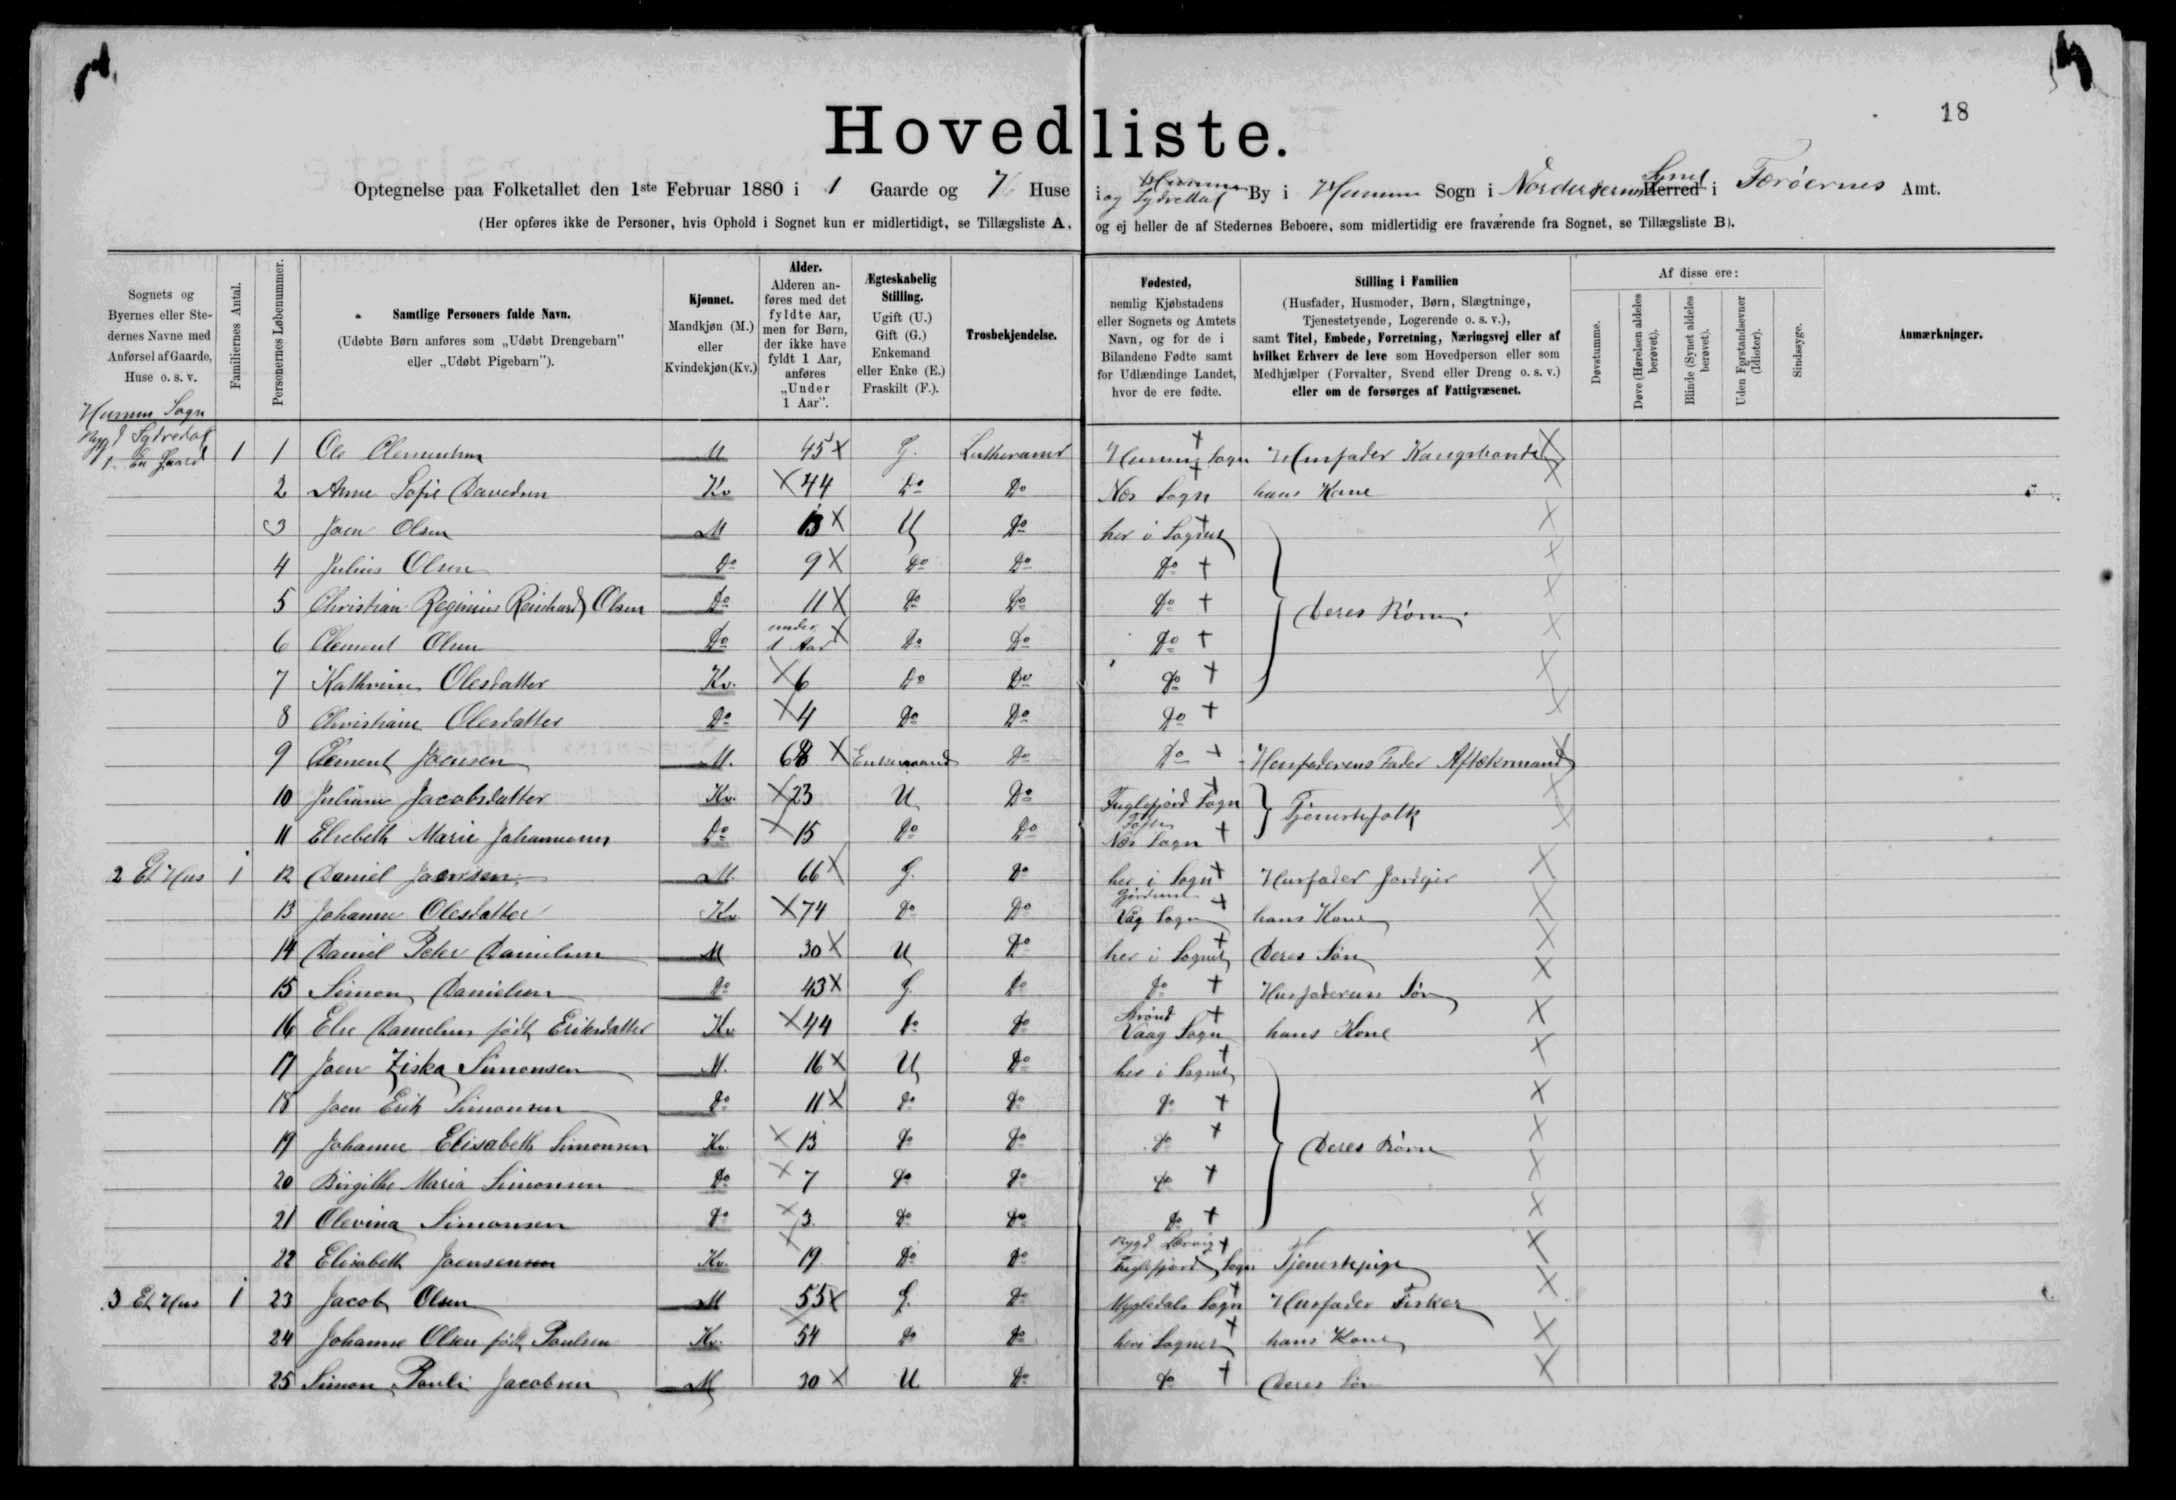 18
Hovedliste.
Optegnelse paa Folketallet den 1ste Februar 1880 i 1 Gaarde og 7 Huse i og Sydredal By i Husum Sogn i Norderøernes Syssel Herred i Færöernes Amt.
(Her opføres ikke de Personer, hvis Ophold i Sognet kun er midlertidigt, se Tillægsliste A, og ej heller de af Stedernes Beboere, som midlertidig ere fraværende fra Sognet, se Tillægsliste B).
Sognets og Byernes eller Stedernes Navne med Anførsel af Gaarde, Huse o. s. v.
Familiernes Antal.
Personernes Løbenummer.
Samtlige Personers fulde Navn.
(Udøbte Børn anføres som „Udøbt Drengebarn” eller „Udøbt Pigebarn”).
Kjønnet.
Mandkjøn (M.) eller Kvindekjøn (Kv.)
Alder.
Alderen anføres med det fyldte Aar, men for Børn, der ikke have fyldt 1 Aar, anføres „Under 1 Aar”.
Ægteskabelig Stilling.
Ugift (U.) Gift (G.) Enkemand eller Enke (E.) Fraskilt (F.).
Trosbekjendelse.
Fødested,
nemlig Kjøbstadens eller Sognets og Amtets Navn, og for de i Bilandene Fødte samt for Udlændinge Landet, hvor de ere fødte.
Stilling i Familien
(Husfader, Husmoder, Børn, Slægtninge, Tjenestetyende, Logerende o. s. v.),
samt Titel, Embede, Forretning, Næringsvej eller af hvilket Erhverv de leve som Hovedperson eller som Medhjælper (Forvalter, Svend eller Dreng o. s. v.) eller om de forsørges af Fattigvæsenet.
Af disse ere:
Døvstumme.
Døve (Hørelsen aldeles berøvet).
Blinde (Synet aldeles berøvet).
Uden Forstandsevner (Idioter).
Sindssyge.
Anmærkninger.
Husum Sogn
Bygd Sydredal
1. En Gaard 1 1 Ole Clementsen M 45 G. Lutheraner Husums Sogn Husfader Kongsbonde
2 Anne Sofie Davedsen Kv 44 Do Do Nes Sogn hans Kone
3 Joen Olsen M 13 U Do her i Sognet
4 Julius Olsen Do 9 Do Do Do
5 Christian Reginius Reinhard Olsen Do 11 Do Do Do Deres Børn
6 Clement Olsen Do under 1 Aar Do Do Do
7 Kathrine Olesdatter Kv. 6 Do Do Do
8 Christiane Olesdatter Do 4 Do Do Do
9 Clement Joensen M. 68 Enkemand Do Do Husfaderens Fader Aftektsmand
10 Juliane Jacobsdatter Kv. 23 U Do Fuglefjord Sogn Tjenestefolk
11 Elsebeth Marie Johannesen Do 15 Do Do Toften Nes Sogn
2 Et Hus 1 12 Daniel Joensen M. 66 G. Do her i Sogn Husfader Jordejer
13 Johanne Olesdatter Kv 74 Do Do Våg Sogn hans Kone
14 Daniel Peter Danielsen M 30 U Do her i Sognet Deres Søn
15 Simon Danielsen Do 43 G. Do Do Husfaderens Søn
16 Else Danielsen født Eriksdatter Kv 44 Do Do Strönd Vaag Sogn hans Kone
17 Joen Ziska Simonsen M. 16 U Do her i Sognet
18 Joen Erik Simonsen Do 11 Do Do Do
19 Johanne Elisabeth Simonsen Kv. 13 Do Do Do Deres Børn
20 Birgithe Maria Simonsen Do 7 Do Do Do
21 Olevina Simonsen Do 3 Do Do Do
22 Elisabeth Joensen Kv. 19 Do Do Bygd Lervig Fuglefjord Sogn Tjenestepige
3 Et Hus 1 23 Jacob Olsen M 55 G. Do Mygledals Sogn Husfader Fisker
24 Johanne Olsen født Poulsen Kv. 54 Do Do her i Sognet hans Kone
25 Simon Pauli Jacobsen M 30 U Do Do Deres Søn